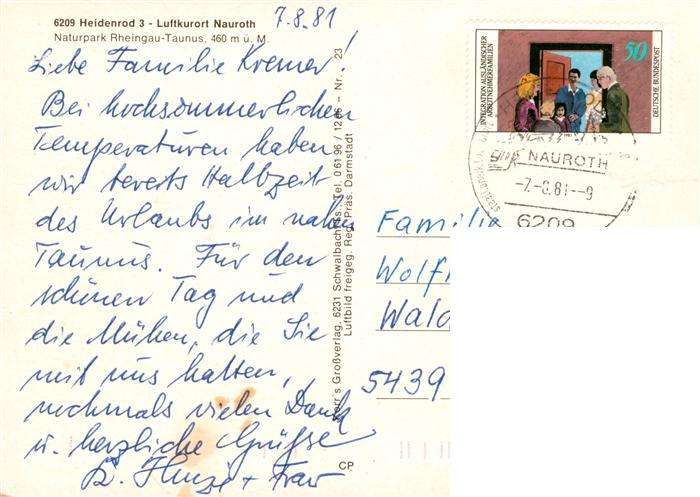 6209 Heidenrod 3 - Luftkurort Nauroth
Naturpark Rheingau-Taunus, 460 m ü. M.
7.8.81
Liebe Familie Kremer!
Bei hochsommerlichen
Temperaturen haben
wir bereits Halbzeit
des Urlaubs im nahen
Taunus. Für den
schönen Tag und
die Mühen, die Sie
mit uns hatten,
nochmals vielen Dank
u. herzliche Grüsse
+ Frau
Großverlag, 6231 Schwalbach/Ts., Tel. 0 61 96 / 12 – Nr. 23
Luftbild freigeg. Reg. Präs. Darmstadt
CP
INTEGRATION AUSLÄNDISCHER
ARBEITNEHMERFAMILIEN
50
DEUTSCHE BUNDESPOST
NAUROTH
-7.-8.81--9
6209
Familie
Wolf
Wald
5439